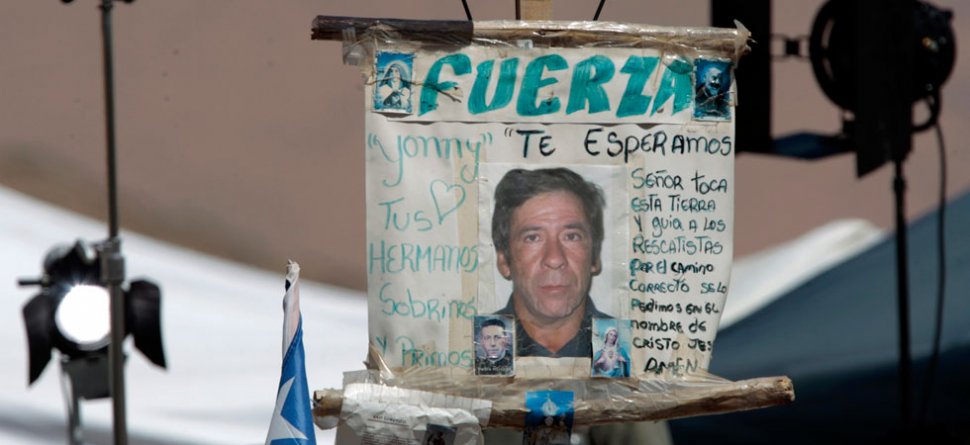 FUERZA
"Yonny"
TUS
HERMANOS
SOBRINOS
Y PRIMOS
"TE ESPERAMOS
SEÑOR TOCA
ESTA TIERRA
Y GUIA A LOS
RESCATISTAS
POR EL CAMINO
CORRECTO SE LO
PEDIMOS EN EL
NOMBRE DE
CRISTO JES
AMEN